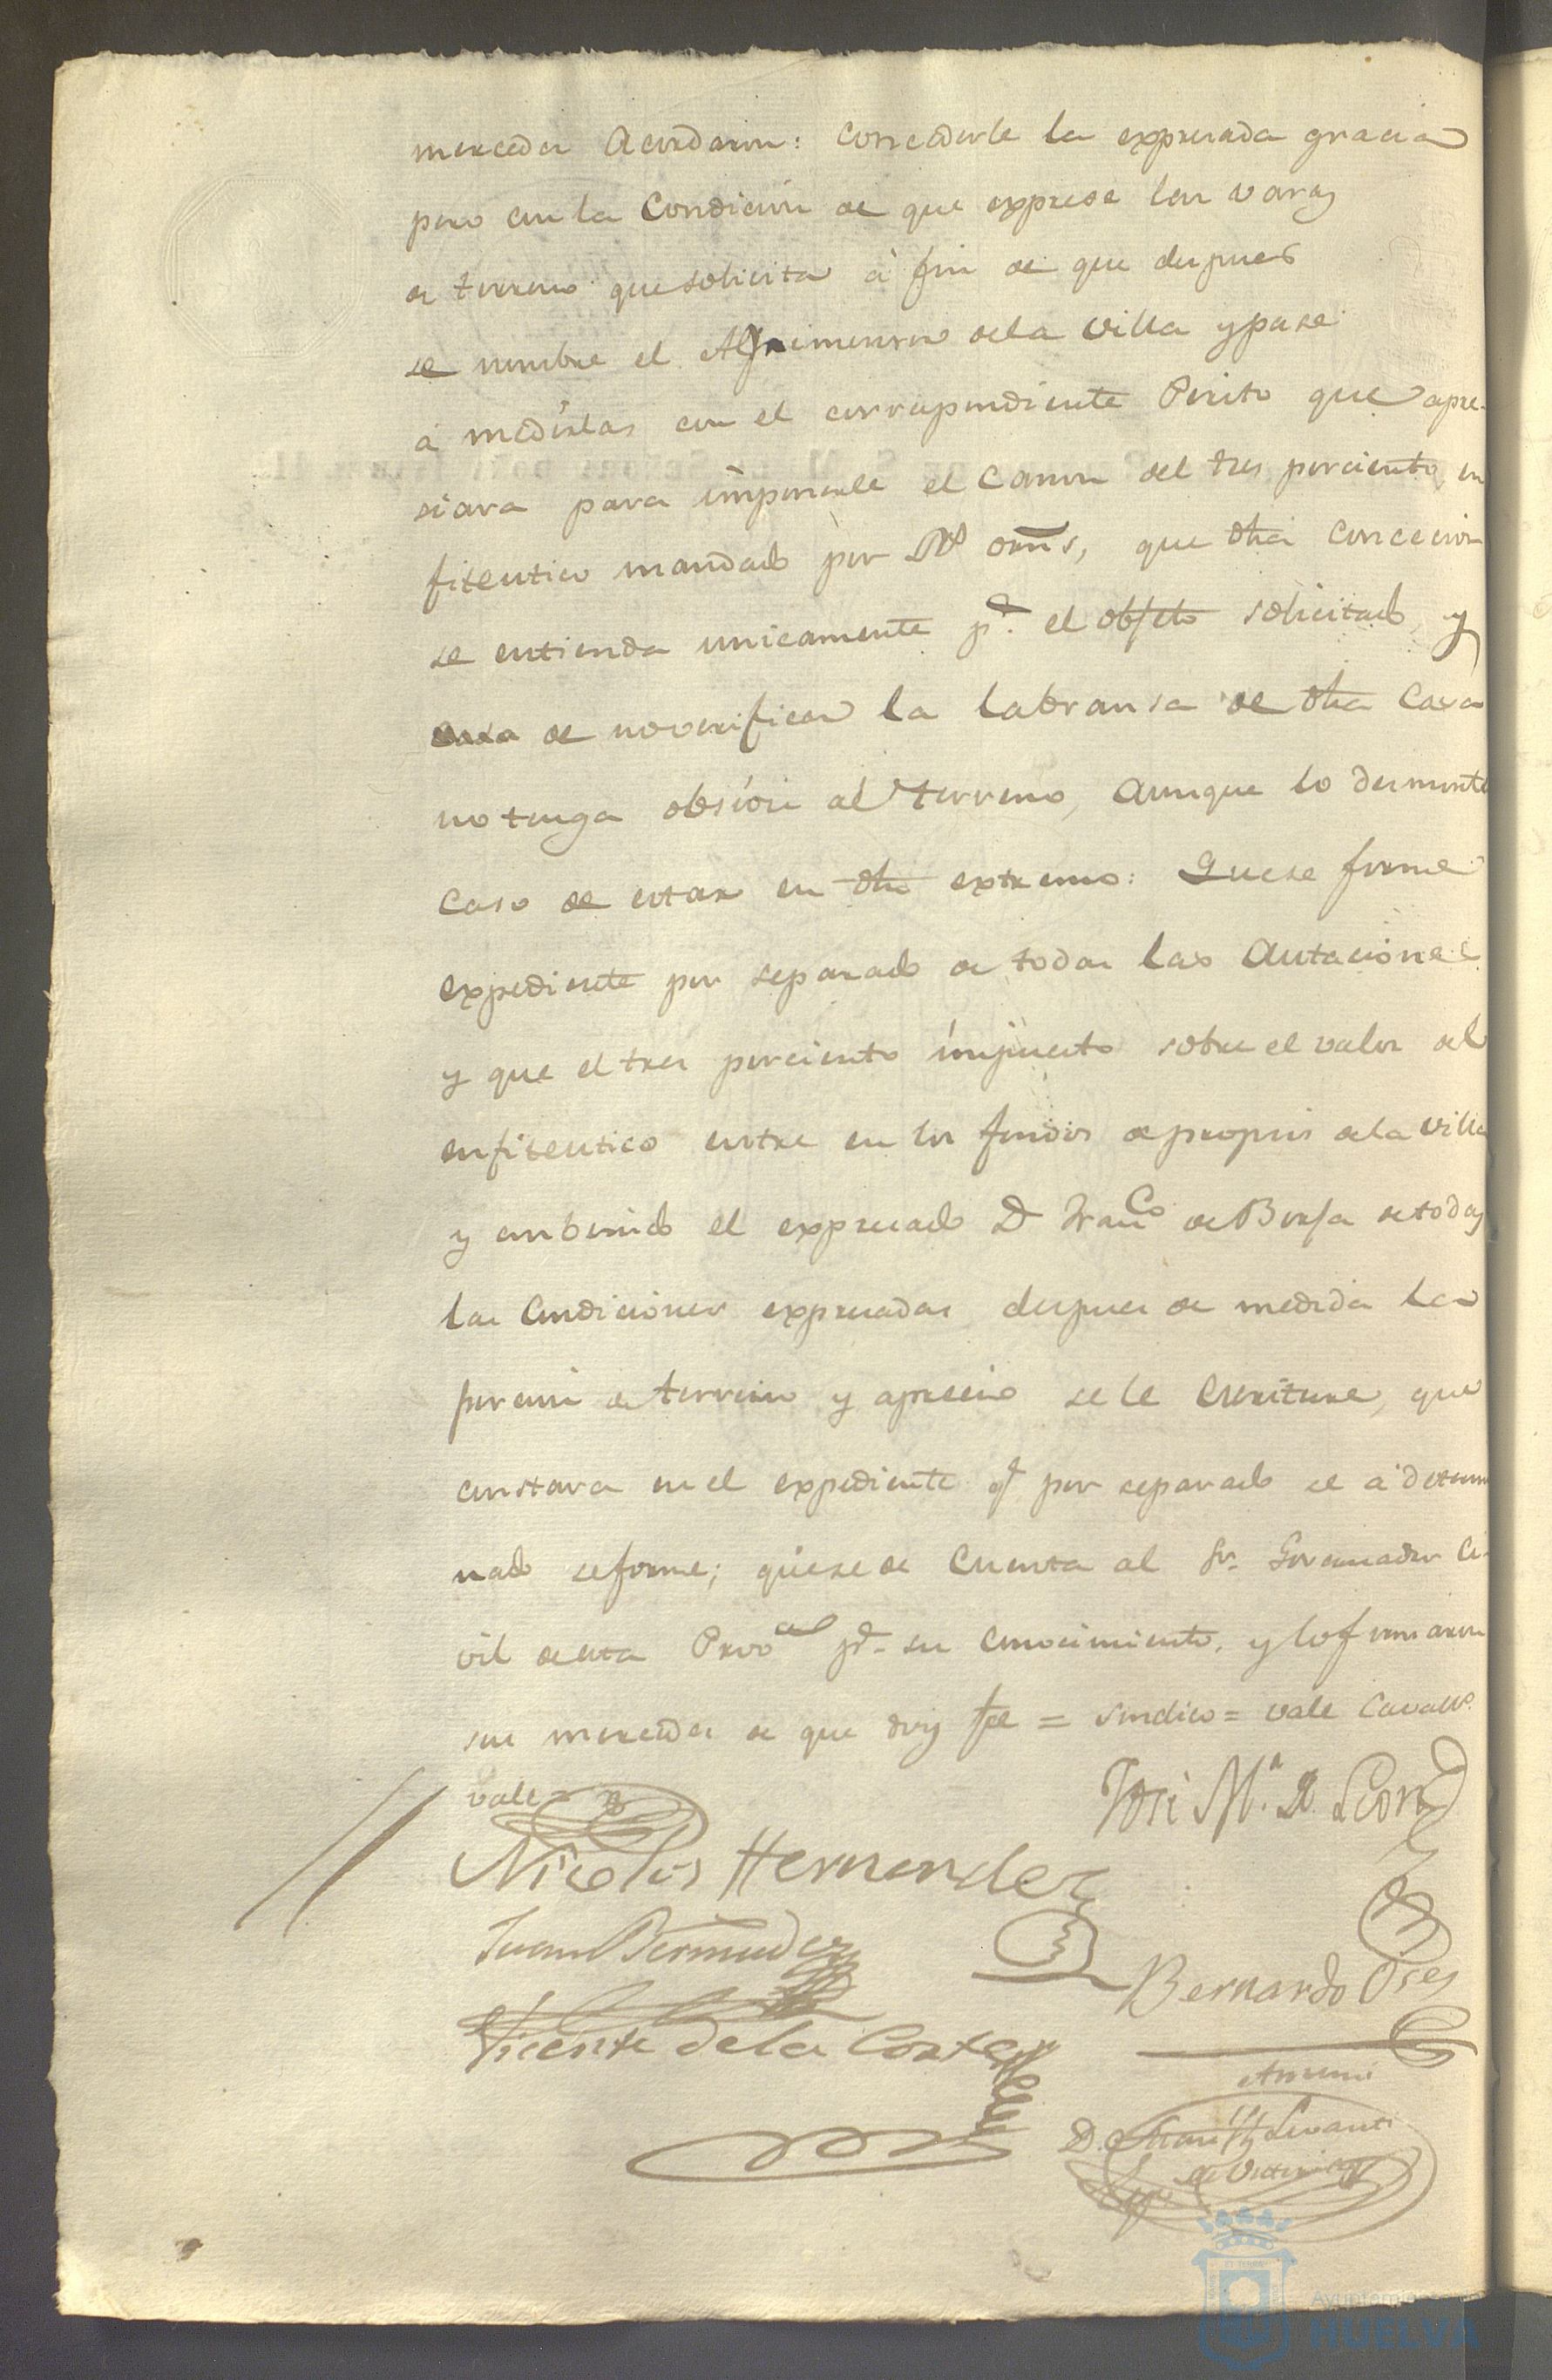 mercedes Acordaron: concederle la expresada gracia
pero con la Condicion de que exprese las varas
de terreno que solicita à fin de que despues
se nombre el Agrimensor dela Villa y pase
a medirlas con el correspondiente Perito que apre-
siara para imponerle el Canon del tres porciento en
fiteutico mandado por Rs ornˢ, que dha concecion
se entienda unicamente pª. el objeto solicitado, y
de no verificar la labransa de dha Casa
no tenga obsion al terreno, aunque lo desmonte
caso de estar en dho extremo: Que se forme
expediente por separado de todas las Autaciones
y que el tres porciento impuesto sobre el valor del
enfiteutico entre en los fondos de propios dela Villa
y combenido el expresado Dⁿ Franᶜᵒ de Borja de todas
las Condiciones expresadas despues de medida la
porcion de terreno y aprecio se le Escriture, que
constara en el expediente q̃ por separado se a determi
nado se forme; que se de Cuenta al Sr. Governador Ci-
vil de esta Provᵃ pª. su conocimiento. y lo firmaron
sus mercedes de que doy fee = sindico = vale Cavallº.
vale =
José Mª. de Leon
Nicolas Hernandez
Juan Bermudez
Bernardo Oses
Vicente de la Corte
Ante mi
D.
Ayuntamiento de
HUELVA